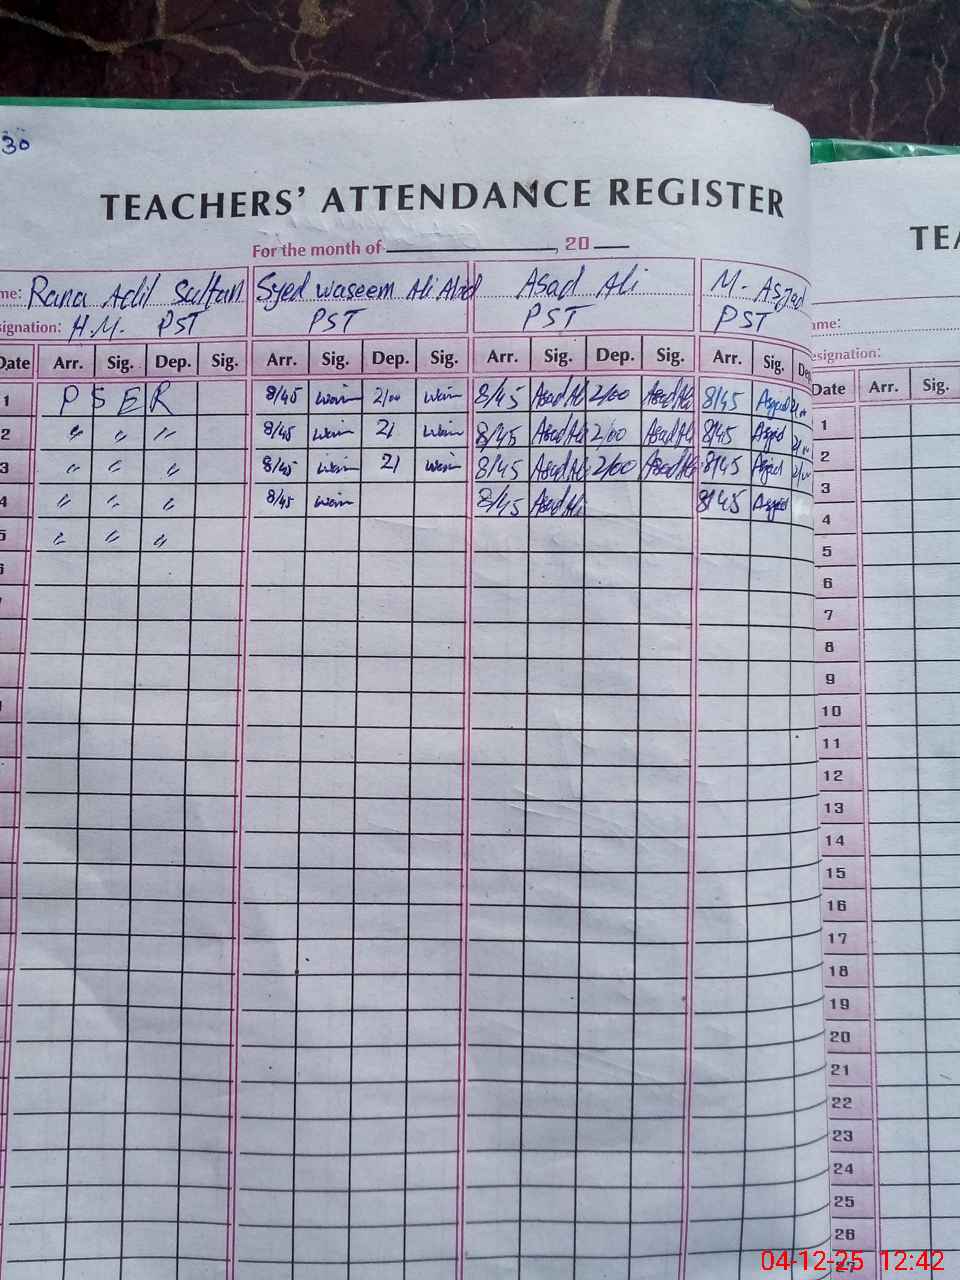 30
TEACHERS' ATTENDANCE REGISTER
TEA
For the month of , 20
me: Rana Adil Sultan Syed Waseem Ali Asad Ali M. Asjad
ame:
signation: H.M. PST PST PST PST
esignation:
Date Arr. Sig. Dep. Sig. Arr. Sig. Dep. Sig. Arr. Sig. Dep. Sig. Arr. Sig. Dep
Date Arr. Sig.
1 P S E R 8/45 2/00 8/45 Asad Ali 2/00 Asad Ali 8/45 Asjad 2/00
2 〃 〃 〃 8/45 2/ 8/45 Asad Ali 2/00 Asad Ali 8/45 Asjad 2/00
3 〃 〃 〃 8/45 2/ 8/45 Asad Ali 2/00 Asad Ali 8/45 Asjad 2/00
4 〃 〃 〃 8/45 8/45 Asad Ali 8/45 Asjad
5 〃 〃 〃
1
2
3
4
5
6
7
8
9
10
11
12
13
14
15
16
17
18
19
20
21
22
23
24
25
26
27
04-12-25 12:42